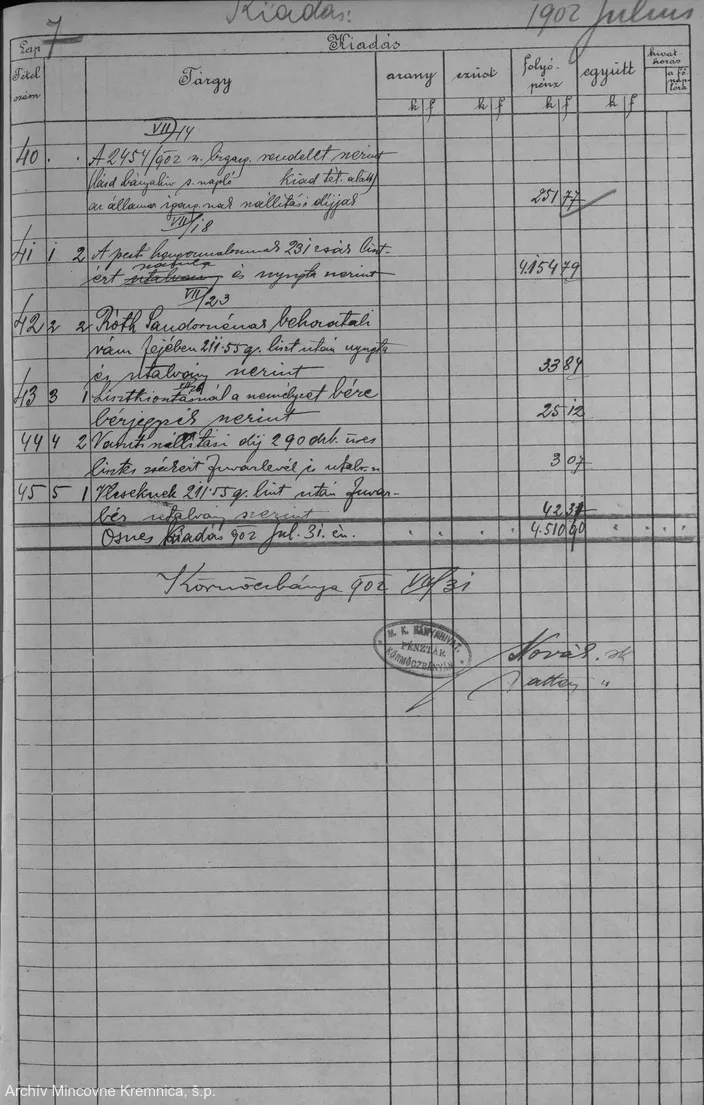 Kiadás: 1902 Julius
Lap 7 Kiadás
Tétel szám Tárgy arany ezüst folyó-pénz együtt hivat-kozás
k f k f k f k f a fő-
VII/14
40 . . A 2454/902 n. rendelet szerint
s. napló kiad tét. alatt)
az államvasutnak szállitási dijjak 251 77
VII/18
41 1 2 A pesti 231 zsák liszt-
ért utalvány és nyugta szerint 4.154 79
VII/23
42 2 2 Róth behozatali
vám fejében 211.55 q. liszt után nyugta
és utalvány szerint 33 84
43 3 1 Lisztkiosztásnál a személyzet bére
bérjegyzék szerint 25 12
44 4 2 Vasuti szállitási dij 290 drb. üres
lisztes zsákért fuvarlevél és utalv. sz 3 07
45 5 1 211.55 q. liszt után fuvar-
bér utalvány szerint 42 31
Összes Kiadás 902 Jul. 31. én. 4.510 90
Körmöczbánya 902 VII/31
M. K. BÁNYAHIVAT.
PÉNZTÁR
KÖRMÖCZBÁNYÁN
Novák sk
Archív Mincovne Kremnica, š.p.